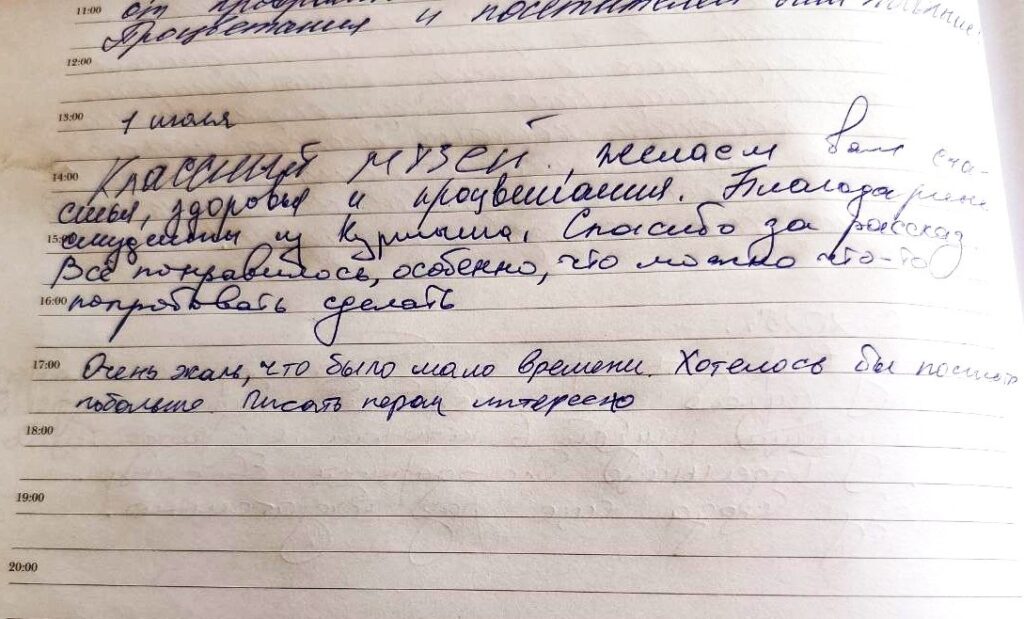 11:00 от
Процветания и посетителей вам
12:00
13:00 1 июля
14:00 Классный музей. Желаем вам сча-
стья, здоровья и процветания. Благодарные
15:00 студенты из Курмыша. Спасибо за рассказ.
Все понравилось, особенно, что можно что-то
16:00 попробовать сделать
17:00 Очень жаль, что было мало времени. Хотелось бы
побольше. Писать пером интересно
18:00
19:00
20:00